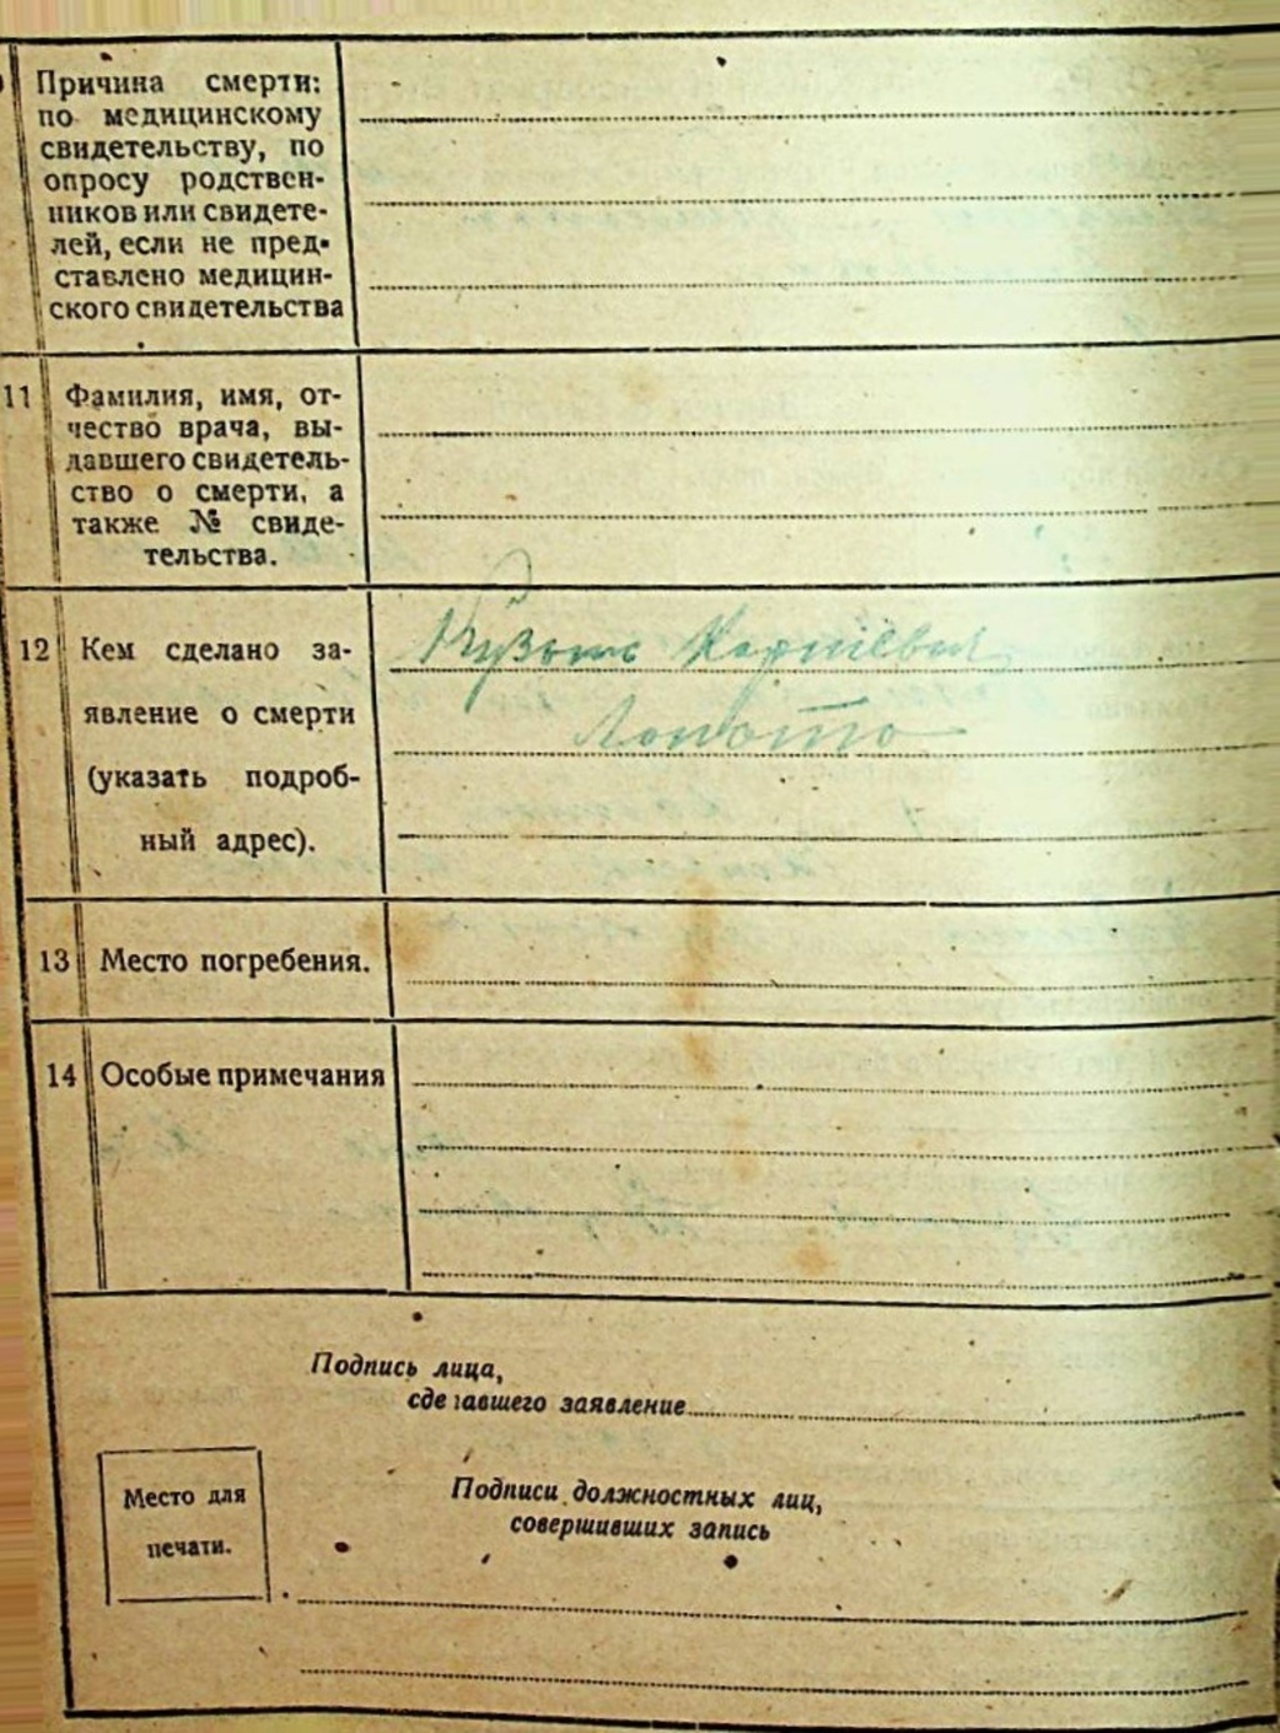 Причина смерти:
по медицинскому
свидетельству, по
опросу родствен-
ников или свидете-
лей, если не пред-
ставлено медицин-
ского свидетельства
11 Фамилия, имя, от-
чество врача, вы-
давшего свидетель-
ство о смерти, а
также № свиде-
тельства.
12 Кем сделано за-
явление о смерти
(указать подроб-
ный адрес).
Лопото
13 Место погребения.
14 Особые примечания
Подпись лица,
сделавшего заявление
Место для
печати.
Подписи должностных лиц,
совершивших запись